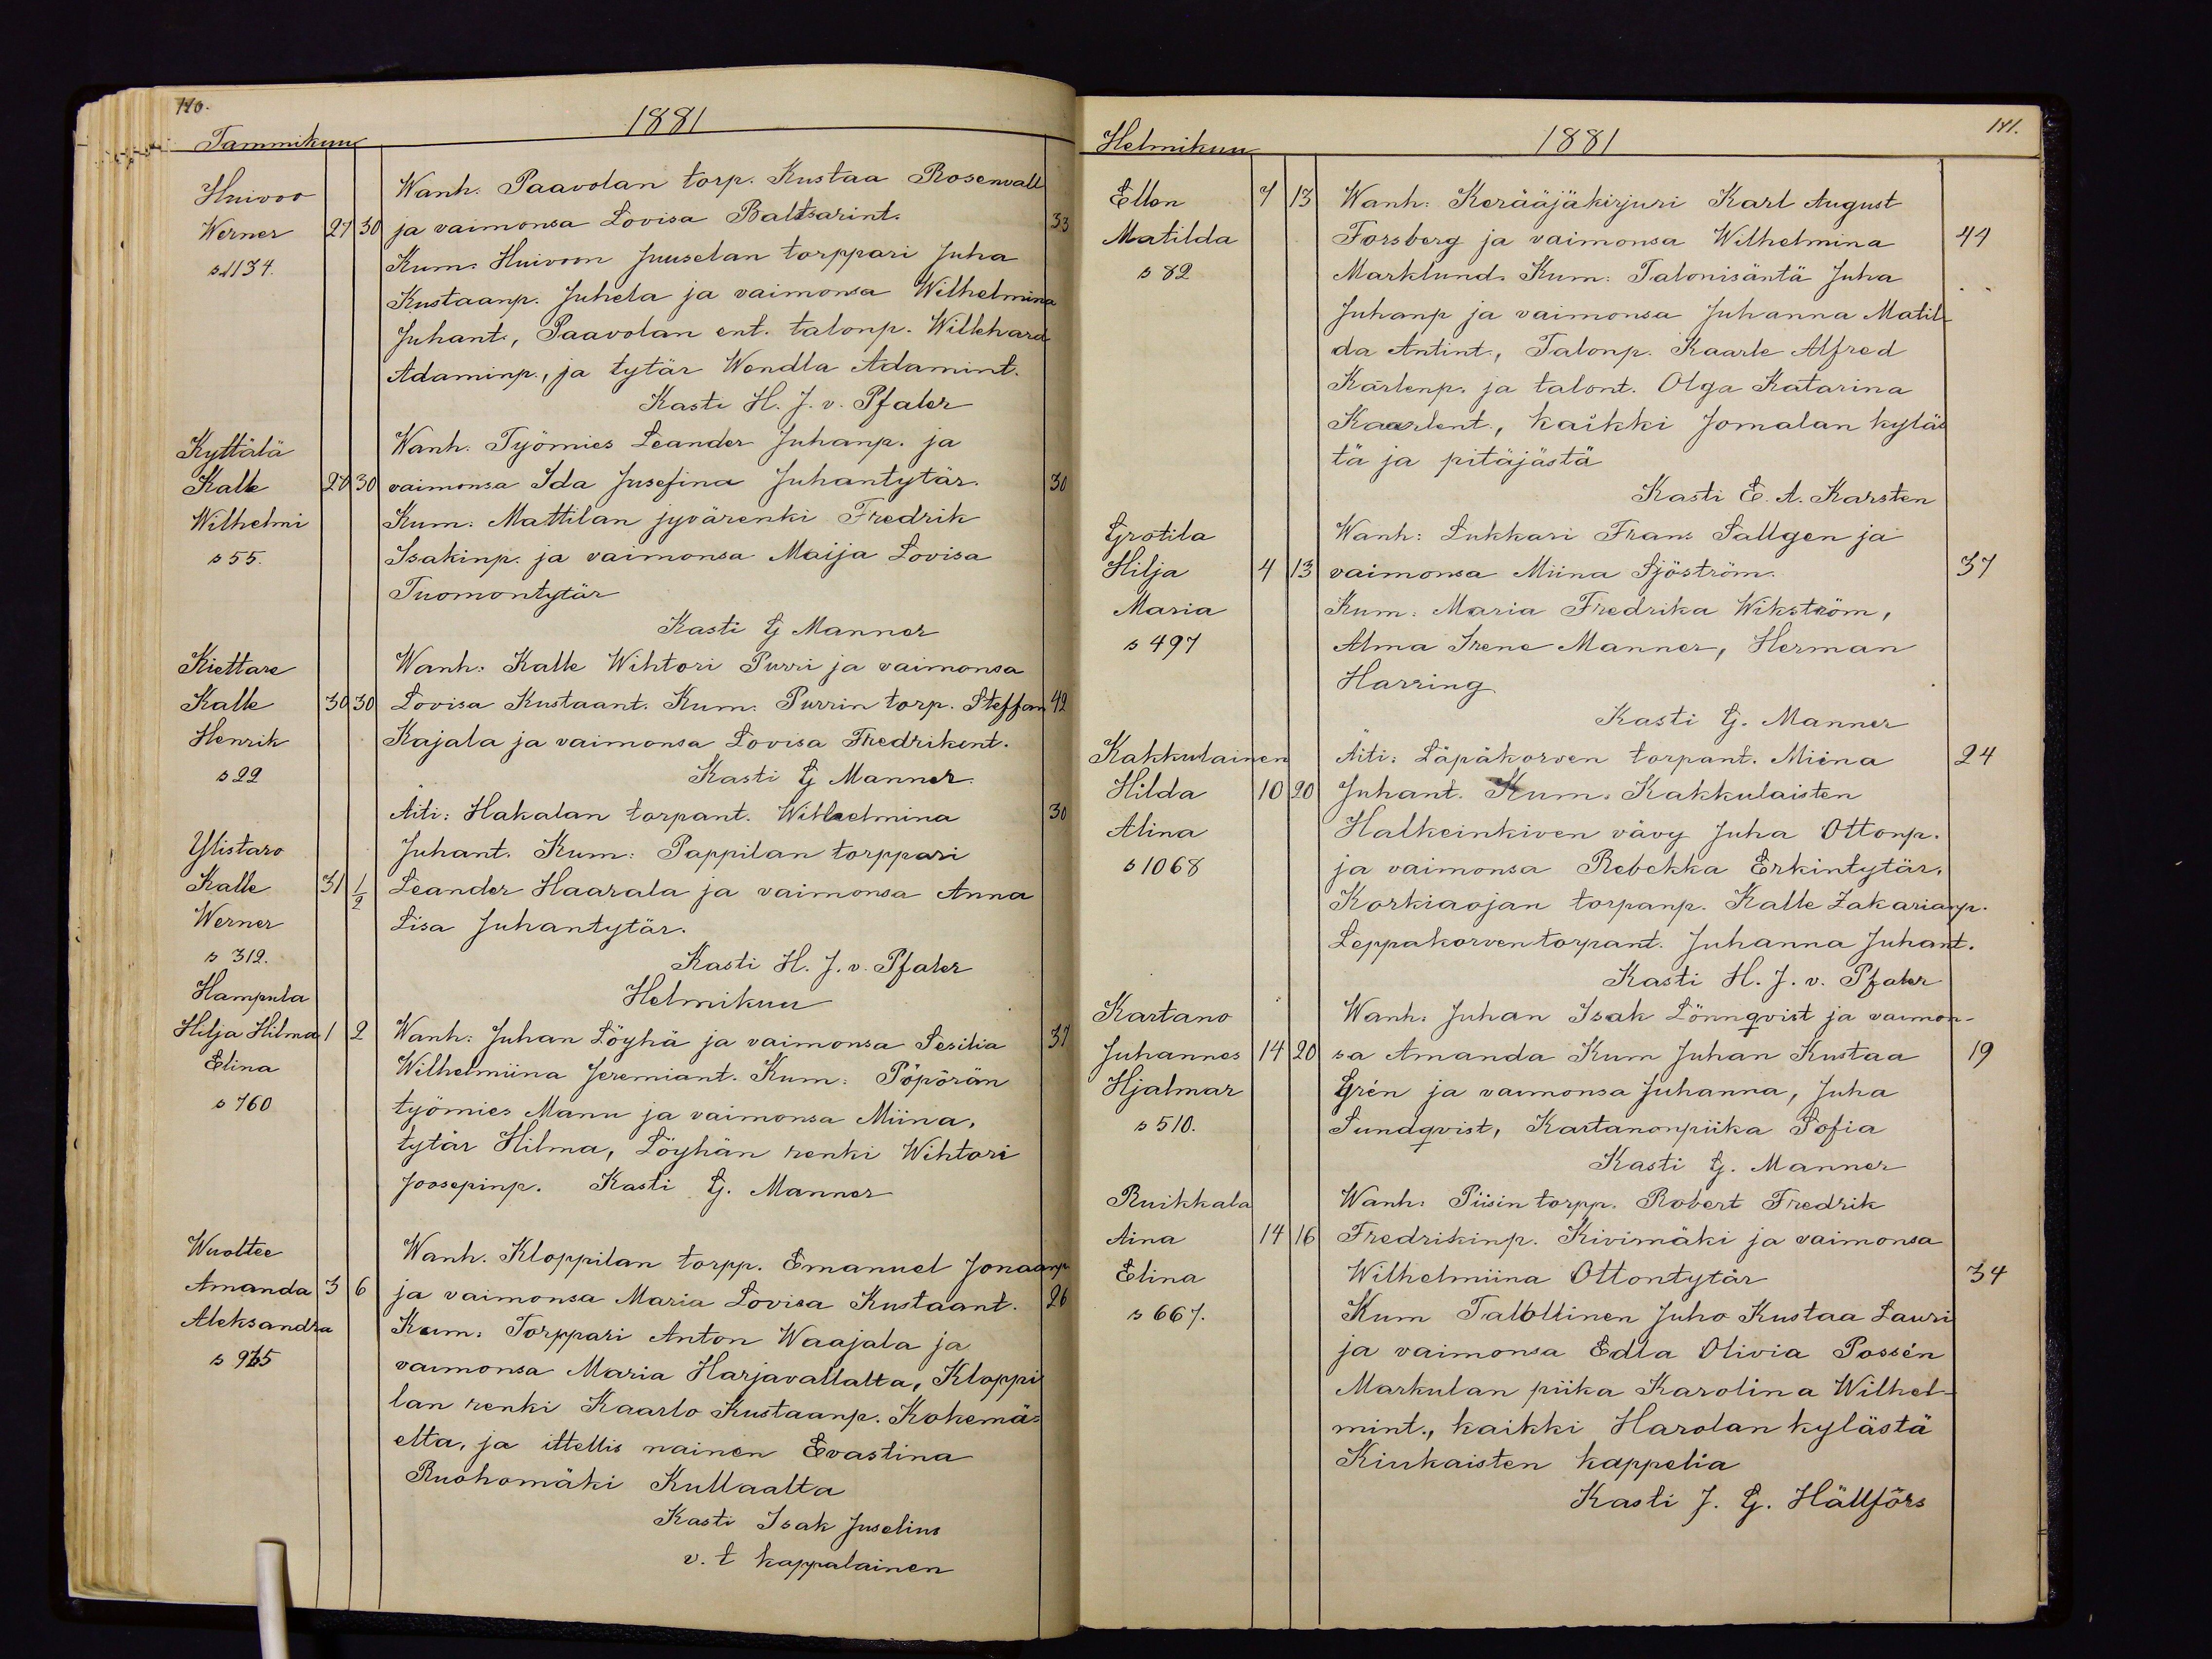 140.
1881
Tammikuu
Huivoo Wanh. Paavolan torp. Kustaa Rosenvall
Werner 27 30 ja vaimonsa Lovisa Baltsarint. 33
s 1134. Kum. Huivoon Juuselan torppari Juha
Kustaanp. Juhela ja vaimonsa Wilhelmina
Juhant., Paavolan ent. talonp. Willehard
Adaminp., ja tytär Wendla Adamint.
Kasti H. J. v. Pfaler
Kyttälä Wanh. Työmies Leander Juhanp. ja
Kalle 27 30 vaimonsa Ida Jusefina Juhantytär. 30
Wilhelmi Kum: Mattilan jyvärenki Fredrik
s 55. Isakinp. ja vaimonsa Maija Lovisa
Tuomontytär
Kasti G Manner
Kiettare Wanh: Kalle Wihtori Purri ja vaimonsa
Kalle 30 30 Lovisa Kustaant. Kum: Purrin torp. Steffan 42
Henrik Kajala ja vaimonsa Lovisa Fredrikent.
s 22 Kasti G Manner.
Äiti: Hakalan torpant. Wilhelmina 30
Ylistaro Juhant. Kum: Pappilan torppari
Kalle 31 1/2 Leander Haarala ja vaimonsa Anna
Werner Lisa Juhantytär.
s 312. Kasti H. J. v. Pfaler
Hampula Helmikuu
Hilja Hilma 1 2 Wanh: Juhan Löyhä ja vaimonsa Sesilia 37
Elina Wilhelmiina Jeremiant. Kum: Pöpörän
s 760 työmies Manu ja vaimonsa Miina,
tytär Hilma, Löyhän renki Wihtori
Joosepinp. Kasti G. Manner
Wuoltee Wanh. Kloppilan torpp. Emanuel Jonaanp
Amanda 3 6 ja vaimonsa Maria Lovisa Kustaant. 26
Aleksandra Kum: Torppari Anton Waajala ja
s 965 vaimonsa Maria Harjavallalta, Kloppi
lan renki Kaarlo Kustaanp. Kokemä-
elta, ja ittellis nainen Evastina
Ruohomäki Kullaalta
Kasti Isak Juselius
v. t kappalainen
141.
1881
Helmikuu
Ellen 7 13 Wanh: Kerääjäkirjuri Karl August
Matilda Forsberg ja vaimonsa Wilhelmina 44
s 82 Marklund. Kum: Talonisäntä Juha
Juhanp ja vaimonsa Juhanna Matil-
da Antint., Talonp. Kaarle Alfred
Kärlenp. ja talont. Olga Katarina
Kaarlent., kaikki Jomalan kyläs
tä ja pitäjästä
Kasti E. A. Karsten
Grotila Wanh: Lukkari Frans Sallgen ja
Hilja 4 13 vaimonsa Miina Sjöström. 37
Maria Kum: Maria Fredrika Wikström,
s 497 Alma Irene Manner, Herman
Harring
Kasti G. Manner
Kakkulainen Äiti: Läpäkorven torpant. Miina 24
Hilda 10 20 Juhant. Kum. Kakkulaisten
Alina Halkeinkiven vävy Juha Ottonp.
s 1068 ja vaimonsa Rebekka Erkintytär.
Korkiaojan torpanp. Kalle Zakarianp.
Leppakorven torpant. Juhanna Juhant.
Kasti H. J. v. Pfaler
Kartano Wanh: Juhan Isak Lönnqvist ja vaimon-
Juhannes 14 20 sa Amanda Kum Juhan Kustaa 19
Hjalmar Grén ja vaimonsa Juhanna, Juha
s 510. Sundqvist, Kartanonpiika Sofia
Kasti G. Manner
Ruikkala Wanh: Piisin torpp. Robert Fredrik
Aina 14 16 Fredrikinp. Kivimäki ja vaimonsa
Elina Wilhelmiina Ottontytär 34
s 667. Kum Talollinen Juho Kustaa Lauri
ja vaimonsa Edla Olivia Possén
Markulan piika Karolina Wilhel-
mint., kaikki Harolan kylästä
Kiukaisten kappelia
Kasti J. G. Hällförs